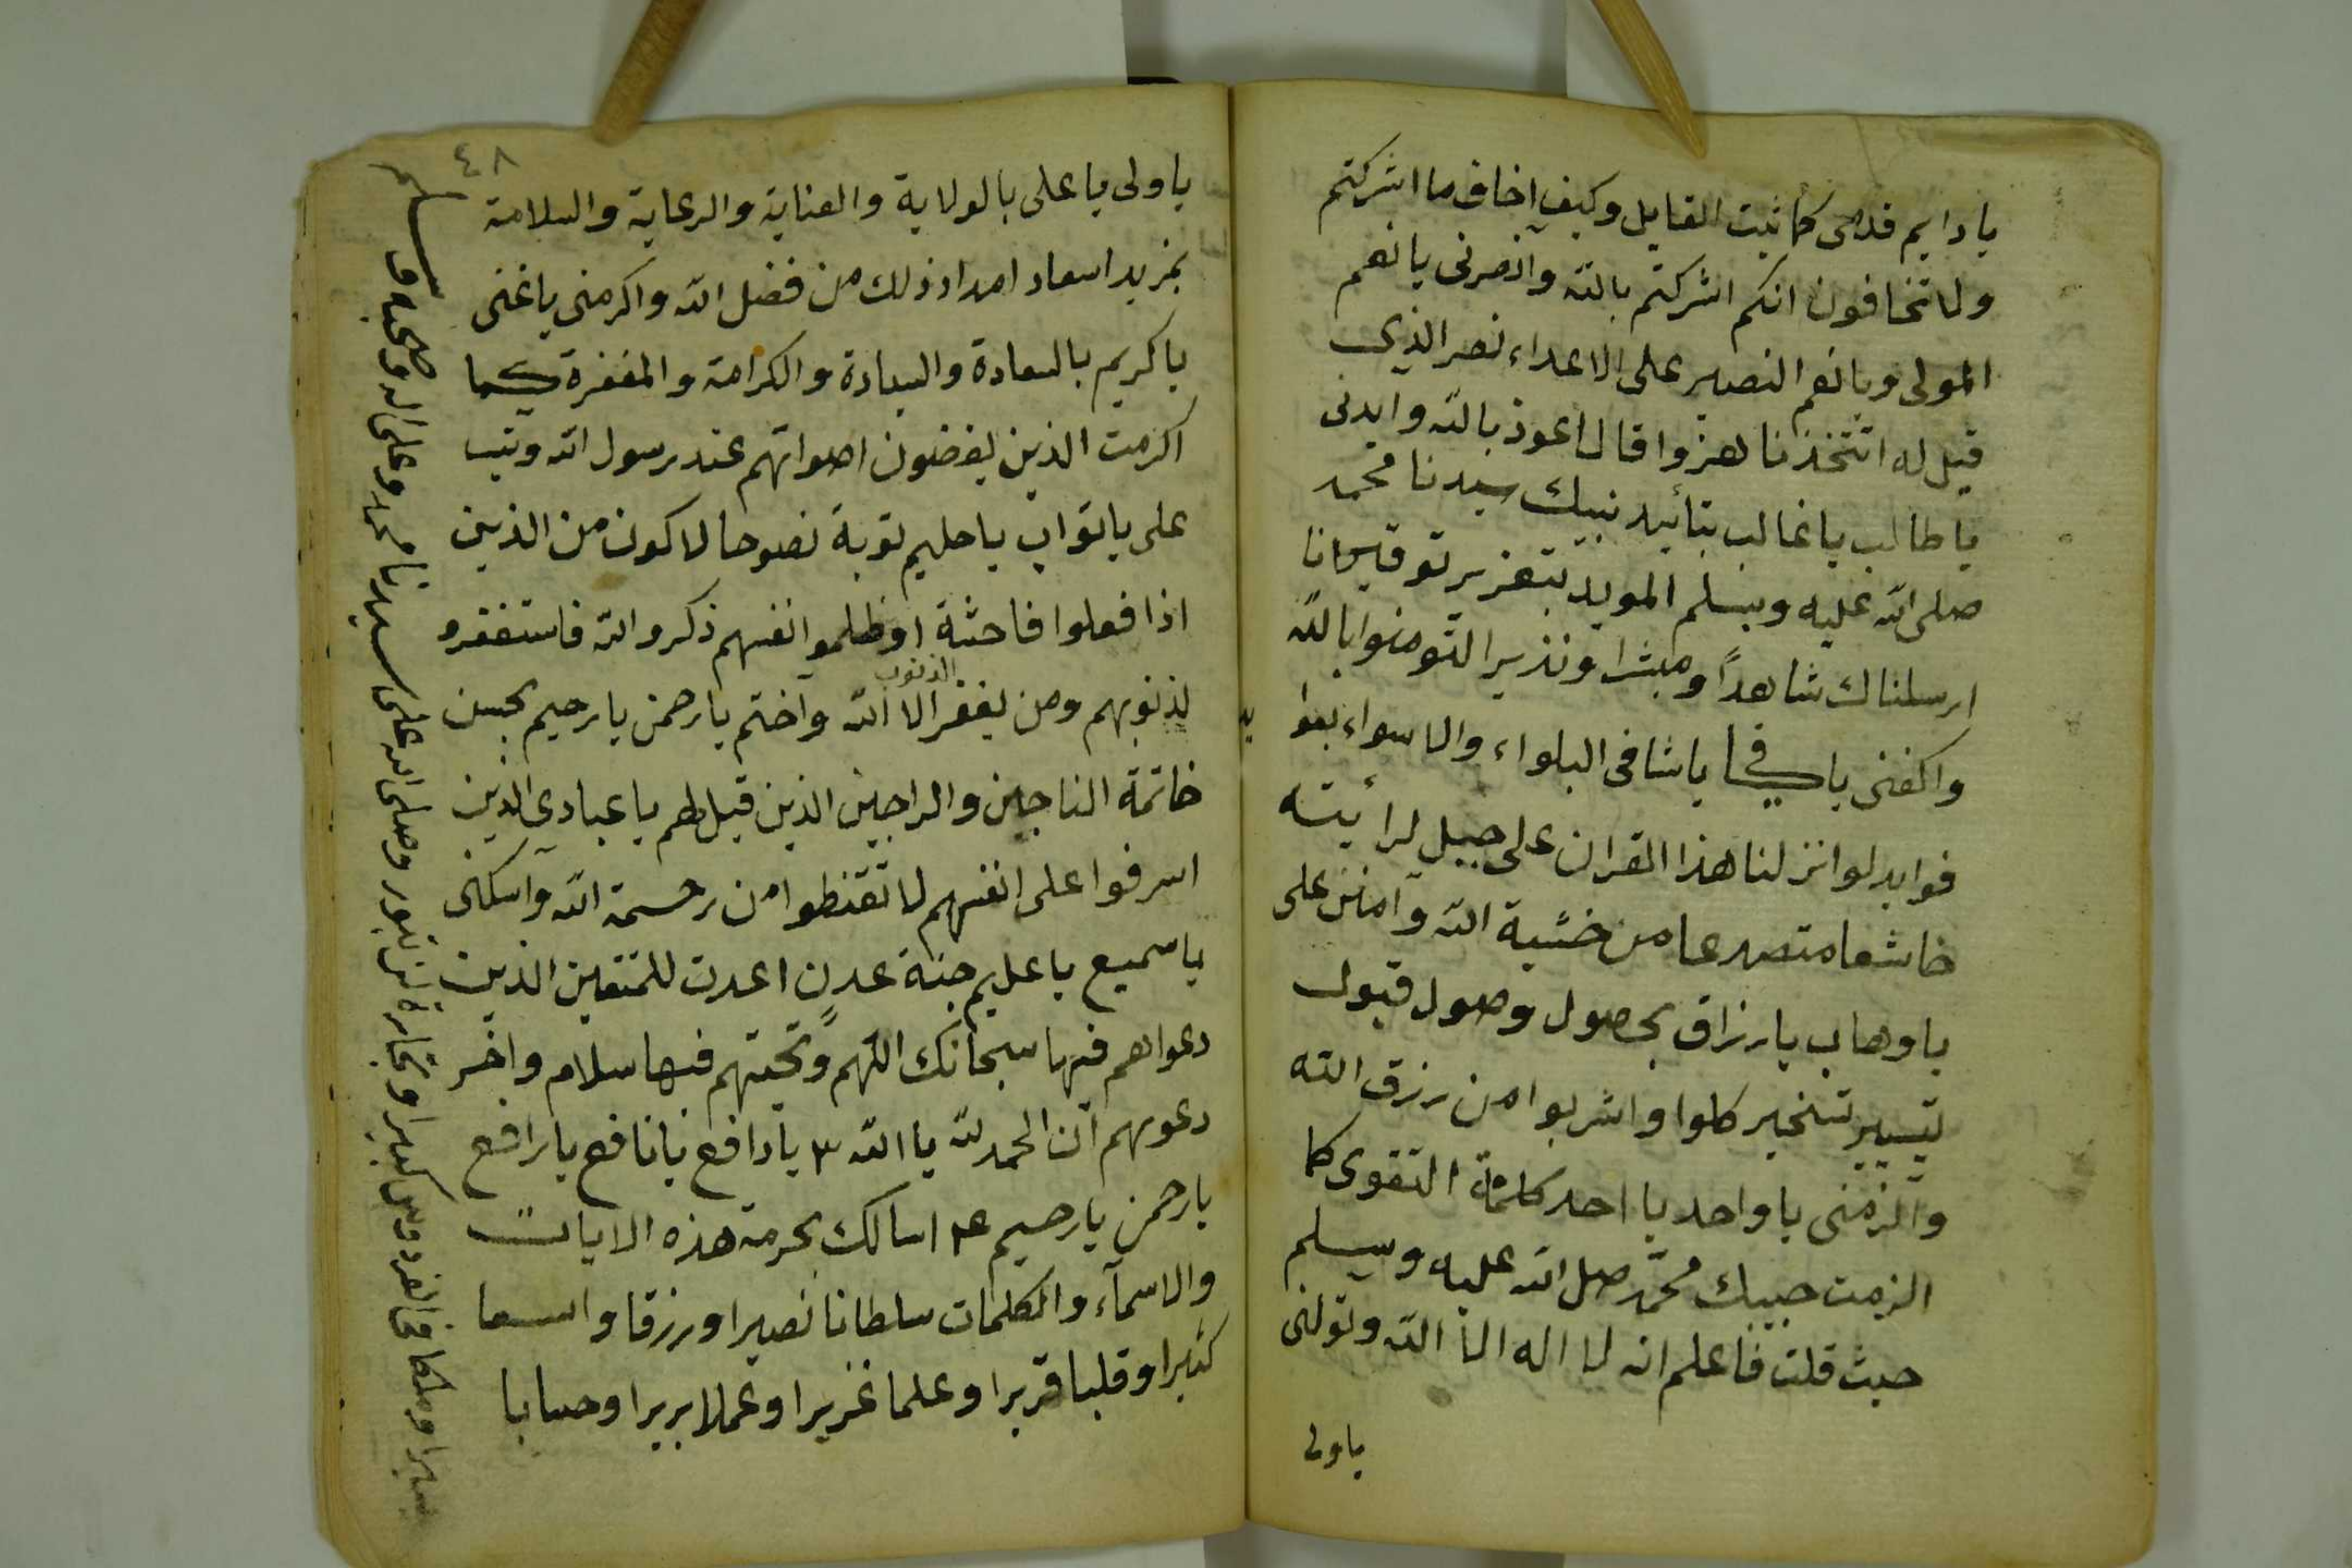 يا دايم قدمى كما ثبت القايل وكيف اخاف ما اشركتم
ولا تخافون انكم اشركتم بالله وانصرنى يا نعم
المولى ويا نعم النصير على الاعداء نصر الذى
قيل له اتتخذنا هزوا قال اعوذ بالله وايدنى
يا طالب يا غالب بتائيد نبيك سيدنا محمد
صلى الله عليه وسلم المويد بتعزير توقير انا
ارسلناك شاهداً ومبشرا ونذيرا لتومنوا بالله
واكفنى يا كافى يا شافى البلواء والاسواء بعوا
فوايد لو انزلنا هذا القران على جبل لرأيته
خاشعا متصدعا من خشية الله وامنن على
يا وهاب يا رزاق بحصول وصول قبول
تيسير تسخير كلوا واشربوا من رزق الله
والزمنى يا واحد يا احد كلمة التقوى كما
الزمت حبيبك محمد صلى الله عليه وسلم
حيث قلت فاعلم انه لا اله الا الله وتولنى
ياولى
٤٨
يا ولى يا على بالولاية والعناية والرعاية والسلامة
بمزيد اسعاد امداد ذلك من فضل الله واكرمنى يا غنى
يا كريم بالسعادة والسيادة والكرامة والمغفرة كما
اكرمت الذين يغضون اصواتهم عند رسول الله وتب
على يا تواب يا حليم توبة نصوحا لاكون من الذين
اذا فعلوا فاحشة او ظلموا انفسهم ذكروا الله فاستغفرو
لذنوبهم ومن يغفر الذنوب الا الله واختم يا رحمن يا رحيم بحسن
خاتمة الناجين والراجين الذين قيل لهم يا عبادى الذين
اسرفوا على انفسهم لا تقنطوا من رحمة الله واسكنى
يا سميع يا عليم جنة عدن اعدت للمتقين الذين
دعواهم فيها سبحانك اللهم وتحيتهم فيها سلام واخر
دعويهم ان الحمد لله يا الله ٣ يا دافع يا نافع يا رافع
يا رحمن يا رحيم ٣ اسالك بحرمة هذه الايات
والاسماء والكلمات سلطانا نصيرا ورزقا واسعا
كثيرا وقلبا قريرا وعلما غزيرا وعملا بريرا وحسابا
يسيرا وملكا فى الفردوس كبيرا وتجارة لن تبور وصلى الله على سيدنا محمد وعلى اله وصحبه وسلم